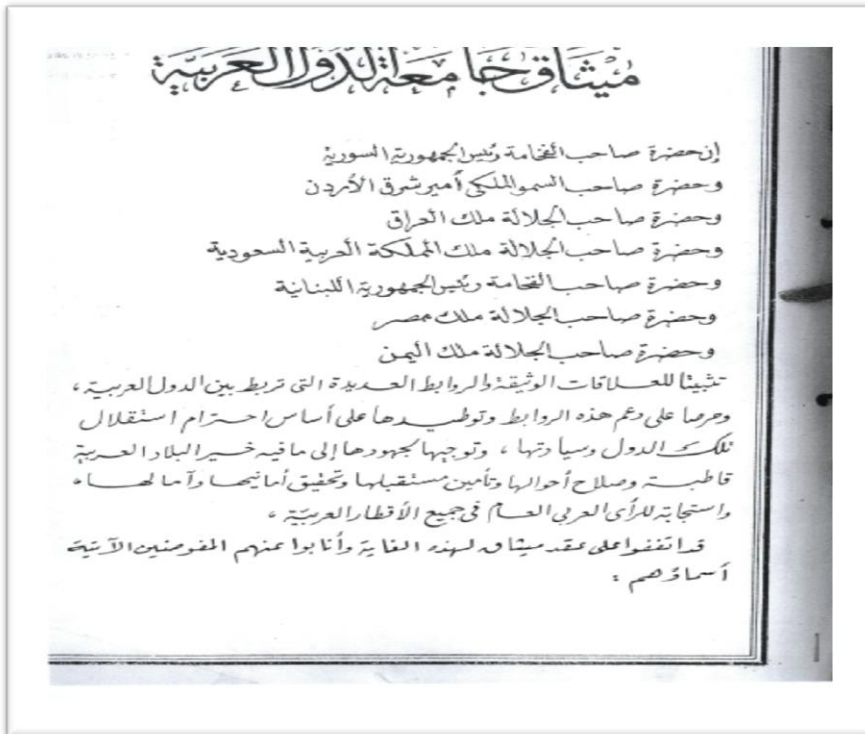 ميثاق جامعة الدول العربية
إن حضرة صاحب الفخامة رئيس الجمهورية السورية
وحضرة صاحب السمو الملكى أمير شرق الأردن
وحضرة صاحب الجلالة ملك العراق
وحضرة صاحب الجلالة ملك المملكة العربية السعودية
وحضرة صاحب الفخامة رئيس الجمهورية اللبنانية
وحضرة صاحب الجلالة ملك مصر
وحضرة صاحب الجلالة ملك اليمن
تثبيتا للعلاقات الوثيقة والروابط العديدة التى تربط بين الدول العربية ،
وحرصا على دعم هذه الروابط وتوطيدها على أساس احترام استقلال
تلك الدول وسيادتها ، وتوجيها لجهودها إلى ما فيه خير البلاد العربية
قاطبة وصلاح أحوالها وتأمين مستقبلها وتحقيق أمانيها وآمالها ،
واستجابة للرأى العربى العام فى جميع الأقطار العربية ،
قد اتفقوا على عقد ميثاق لهذه الغاية وأنابوا عنهم المفوضين الآتية
أسماؤهم :